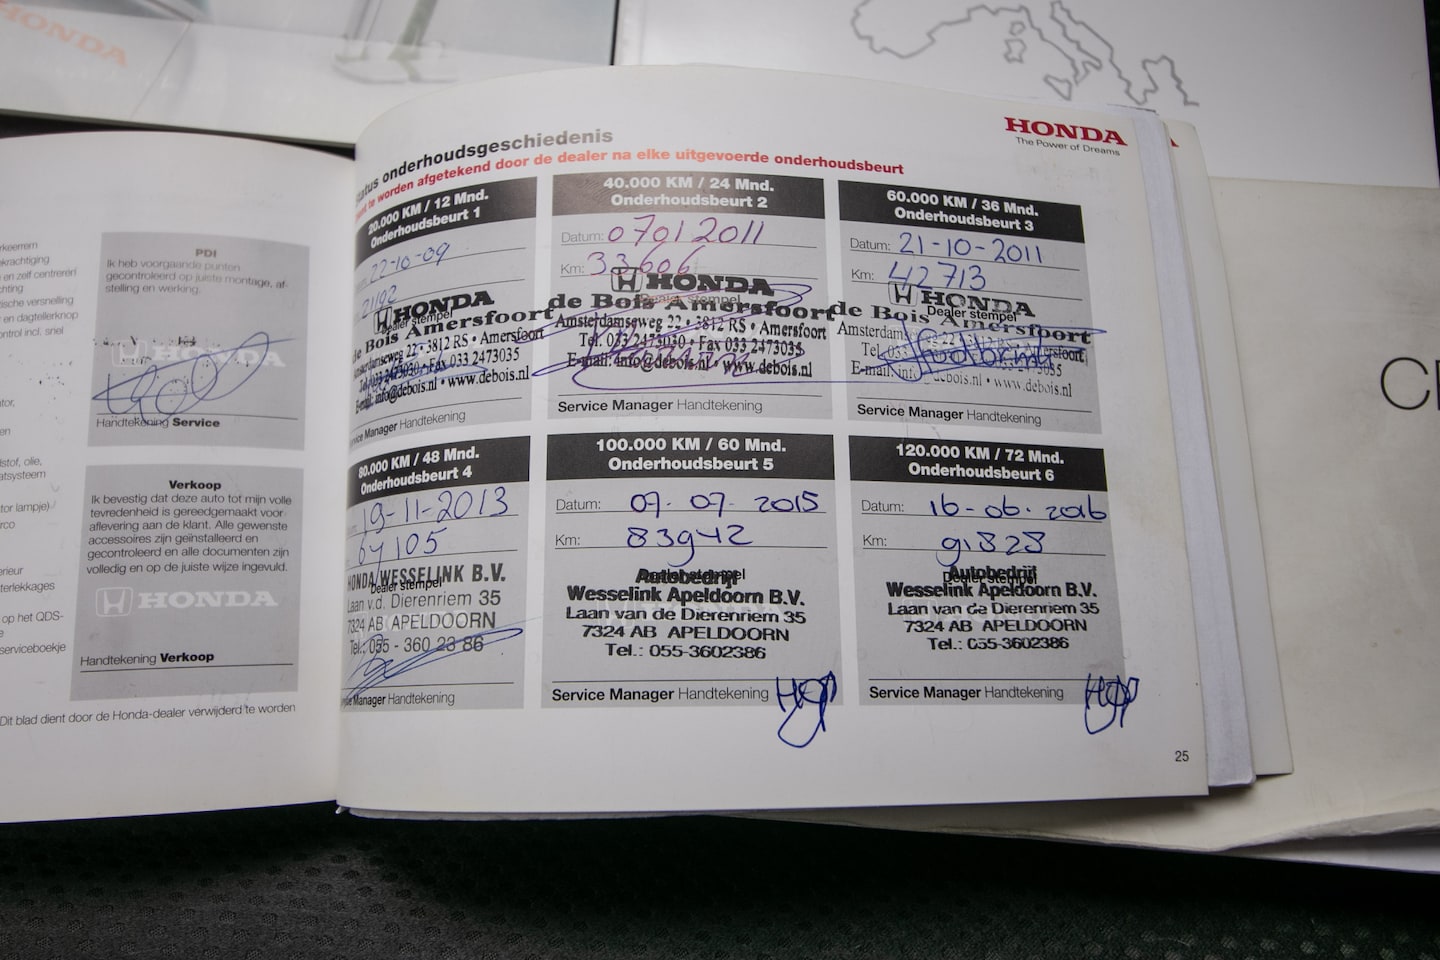 HONDA
CR
rkeerrem
krachtiging
n en zelf centreren
chting
ische versnelling
en dagtellerknop
ontrol incl. snel
tor,
en
stof, olie,
atsysteem
tor lampje)
rco
erieur
terlekkages
op het QDS-
e
serviceboekje
PDI
Ik heb voorgaande punten
gecontroleerd op juiste montage, af-
stelling en werking.
HONDA
Handtekening Service
Verkoop
Ik bevestig dat deze auto tot mijn volle
tevredenheid is gereedgemaakt voor
aflevering aan de klant. Alle gewenste
accessoires zijn geïnstalleerd en
gecontroleerd en alle documenten zijn
volledig en op de juiste wijze ingevuld.
HONDA
Handtekening Verkoop
Dit blad dient door de Honda-dealer verwijderd te worden
HONDA
The Power of Dreams
Status onderhoudsgeschiedenis
te worden afgetekend door de dealer na elke uitgevoerde onderhoudsbeurt
20.000 KM / 12 Mnd.
Onderhoudsbeurt 1
22-10-09
21192
HONDA
Dealer stempel
de Bois Amersfoort
Amsterdamseweg 22 • 3812 RS • Amersfoort
Tel. 033 2473030 • Fax 033 2473035
E-mail: info@debois.nl • www.debois.nl
Service Manager Handtekening
40.000 KM / 24 Mnd.
Onderhoudsbeurt 2
Datum: 07012011
Km: 33606
HONDA
Dealer stempel
de Bois Amersfoort
Amsterdamseweg 22 • 3812 RS • Amersfoort
Tel. 033 2473030 • Fax 033 2473035
E-mail: info@debois.nl • www.debois.nl
Service Manager Handtekening
60.000 KM / 36 Mnd.
Onderhoudsbeurt 3
Datum: 21-10-2011
Km: 42713
HONDA
Dealer stempel
de Bois Amersfoort
Amsterdam 22 • 3812 RS • Amersfoort
Tel. 033
E-mail: info debois.nl • www.debois.nl
Service Manager Handtekening
80.000 KM / 48 Mnd.
Onderhoudsbeurt 4
19-11-2013
64105
HONDA/WESSELINK B.V.
Dealer stempel
Laan v.d. Dierenriem 35
7324 AB APELDOORN
Tel.: 055 - 360 23 86
Service Manager Handtekening
100.000 KM / 60 Mnd.
Onderhoudsbeurt 5
Datum: 07-07-2015
Km: 83942
Autobedrijf
Dealer stempel
Wesselink Apeldoorn B.V.
Laan van de Dierenriem 35
7324 AB APELDOORN
Tel.: 055-3602386
Service Manager Handtekening
120.000 KM / 72 Mnd.
Onderhoudsbeurt 6
Datum: 16-06-2016
Km: 91828
Autobedrijf
Dealer stempel
Wesselink Apeldoorn B.V.
Laan van de Dierenriem 35
7324 AB APELDOORN
Tel.: 055-3602386
Service Manager Handtekening
25